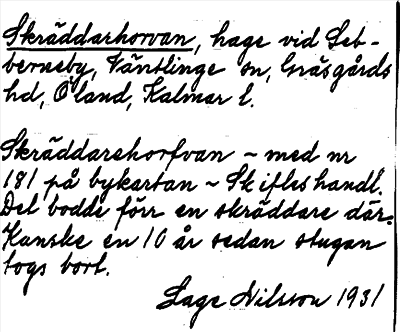 Skräddarhorvan, hage vid Seb-
berneby, Väntlinge sn, Gräsgårds
hd, Öland, Kalmar l.
Skräddarehorfvan – med nr
181 på bykartan – Skifteshandl.
Del bodde förr en skräddare där.
Kanske en 10 år sedan stugan
togs bort.
Sage Nilsson 1931